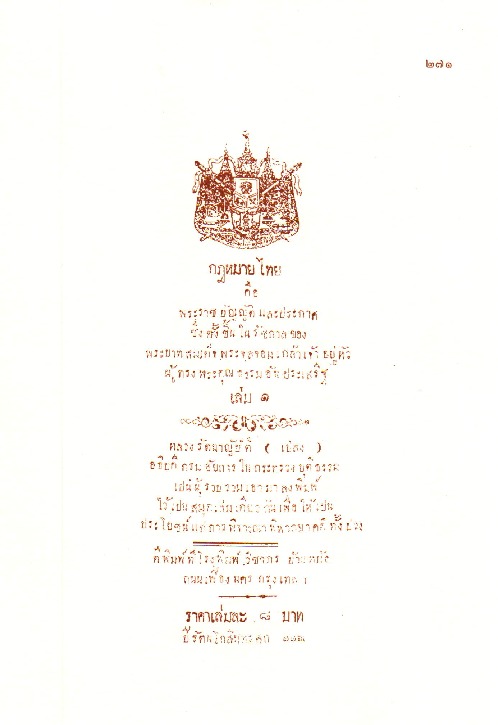 ๒๗๑
กฎหมายไทย
คือ
พระราชบัญญัติและประกาศ
ซึ่งตั้งขึ้นในรัชกาลของ
พระบาทสมเด็จพระจุลจอมเกล้าเจ้าอยู่หัว
ผู้ทรงพระคุณธรรมอันประเสริฐ
เล่ม ๑
หลวงรัตนาญัปติ์ ( เปล่ง )
อธิบดีกรมอัยการในกระทรวงยุติธรรม
เปนผู้รวบรวมเอามาลงพิมพ์
ไว้เป็นสมุดเล่มเดียวกันเพื่อให้เป็น
ประโยชน์แก่การพิจารณาพิพากษาคดีทั้งปวง
ตีพิมพ์ที่โรงพิมพ์
ถนนเฟื่องนคร กรุงเทพ ฯ
ราคาเล่มละ ๘ บาท
ปีรัตนโกสินทรศก